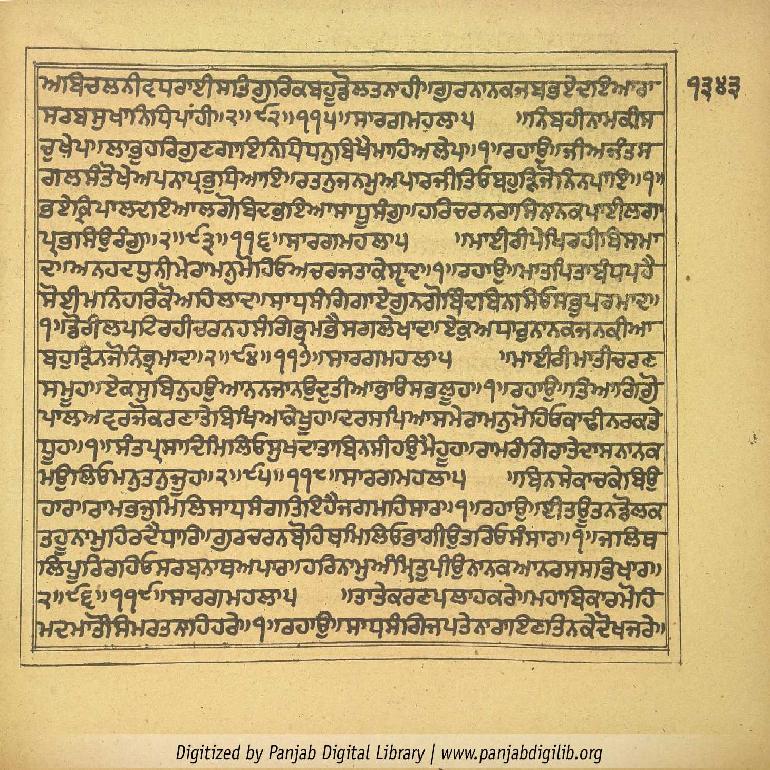 ੧੩੪੩
ਅਬਿਚਲਨੀਵਧਰਾਈਸਤਿਗੁਰਿਕਬਹੂਡੋਲਤਨਾਹੀ॥ਗੁਰਨਾਨਕਜਬਭਏਦਇਆਰਾ
ਸਰਬਸੁਖਾਨਿਧਿਪਾਂਹੀ॥੨॥੯੨॥੧੧੫॥ਸਾਰਗਮਹਲਾ੫ ॥ਨਿਬਹੀਨਾਮਕੀਸ
ਚੁਖੇਪ॥ਲਾਭੁਹਰਿਗੁਣਗਾਇਨਿਧਿਧਨੁਬਿਖੈਮਾਹਿਅਲੇਪ॥੧॥ਰਹਾਉ॥ਜੀਅਜੰਤਸ
ਗਲਸੰਤੋਖੇਅਪਨਾਪ੍ਰਭੁਧਿਆਇ॥ਰਤਨੁਜਨਮੁਅਪਾਰਜੀਤਿਓਬਹੁੜਿਜੋਨਿਨਪਾਇ॥੧॥
ਭਏਕ੍ਰਿਪਾਲਦਇਆਲਗੋਬਿਦਭਇਆਸਾਧੂਸੰਗੁ॥ਹਰਿਚਰਨਰਾਸਿਨਾਨਕਪਾਈਲਗਾ
ਪ੍ਰਭਸਿਉਰੰਗੁ॥੨॥੯੩॥੧੧੬॥ਸਾਰਗਮਹਲਾ੫ ॥ਮਾਈਰੀਪੇਖਿਰਹੀਬਿਸਮਾ
ਦ॥ਅਨਹਦਧੁਨੀਮੇਰਾਮਨੁਮੋਹਿਓਅਚਰਜਤਾਕੇਸ੍ਵਾਦ॥੧॥ਰਹਾਉ॥ਮਾਤਪਿਤਾਬੰਧਪਹੈ
ਸੋਈਮਨਿਹਰਿਕੋਅਹਿਲਾਦ॥ਸਾਧਸੰਗਿਗਾਏਗੁਨਗੋਬਿੰਦਬਿਨਸਿਓਸਭੁਪਰਮਾਦ॥
੧॥ਡੋਰੀਲਪਟਿਰਹੀਚਰਨਹਸੰਗਿਭ੍ਰਮਭੈਸਗਲੇਖਾਦ॥ਏਕੁਅਧਾਰੁਨਾਨਕਜਨਕੀਆ
ਬਹੁੜਿਨਜੋਨਿਭ੍ਰਮਾਦ॥੨॥੯੪॥੧੧੭॥ਸਾਰਗਮਹਲਾ੫ ॥ਮਾਈਰੀਮਾਤੀਚਰਣ
ਸਮੂਹ॥ਏਕਸੁਬਿਨੁਹਉਆਨਨਜਾਨਉਦੁਤੀਆਭਾਉਸਭਲੂਹ॥੧॥ਰਹਾਉ॥ਤਿਆਗਿਗੋ
ਪਾਲਅਵਰਜੋਕਰਣਾਤੇਬਿਖਿਆਕੇਖੂਹ॥ਦਰਸਪਿਆਸਮੇਰਾਮਨੁਮੋਹਿਓਕਾਢੀਨਰਕਤੇ
ਧੂਹ॥੧॥ਸੰਤਪ੍ਰਸਾਦਿਮਿਲਿਓਸੁਖਦਾਤਾਬਿਨਸੀਹਉਮੈਹੂਹ॥ਰਾਮਰੰਗਿਰਾਤੇਦਾਸਨਾਨਕ
ਮਉਲਿਓਮਨੁਤਨੁਜੂਹ॥੨॥੯੫॥੧੧੮॥ਸਾਰਗਮਹਲਾ੫ ॥ਬਿਨਸੇਕਾਚਕੇਬਿਉ
ਹਾਰ॥ਰਾਮਭਜੁਮਿਲਿਸਾਧਸੰਗਤਿਇਹੈਜਗਮਹਿਸਾਰ॥੧॥ਰਹਾਉ॥ਈਤਊਤਨਡੋਲਕ
ਤਹੂਨਾਮੁਹਿਰਦੈਧਾਰਿ॥ਗੁਰਚਰਨਬੋਹਿਥਮਿਲਿਓਭਾਗੀਉਤਰਿਓਸੰਸਾਰ॥੧॥ਜਲਿਥ
ਲਿਪੂਰਿਰਹਿਓਸਰਬਨਾਥਅਪਾਰ॥ਹਰਿਨਾਮੁਅੰਮ੍ਰਿਤੁਪੀਉਨਾਨਕਆਨਰਸਸਭਿਖਾਰ॥
੨॥੯੬॥੧੧੯॥ਸਾਰਗਮਹਲਾ੫ ॥ਤਾਤੇਕਰਣਪਲਾਹਕਰੇ॥ਮਹਾਬਿਕਾਰਮੋਹ
ਮਦਮਾਤੌਸਿਮਰਤਨਾਹਿਹਰੇ॥੧॥ਰਹਾਉ॥ਸਾਧਸੰਗਿਜਪਤੇਨਾਰਾਇਣਤਿਨਕੇਦੋਖਜਰੇ॥
Digitized by Panjab Digital Library | www.panjabdigilib.org